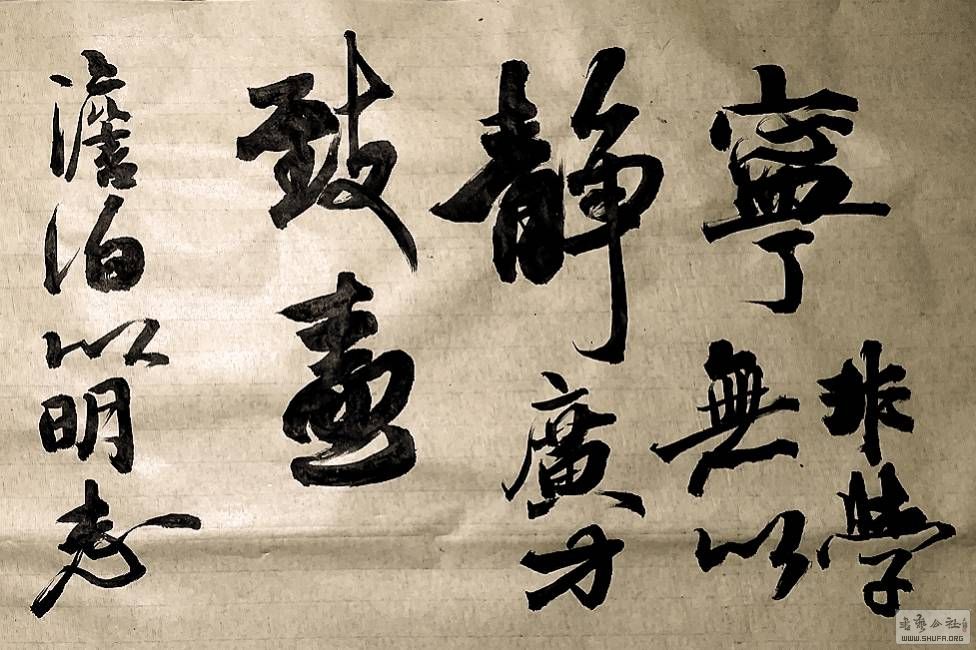 非學
寧無以
靜廣才
致遠
澹泊以明志
WWW.SHUFA.ORG